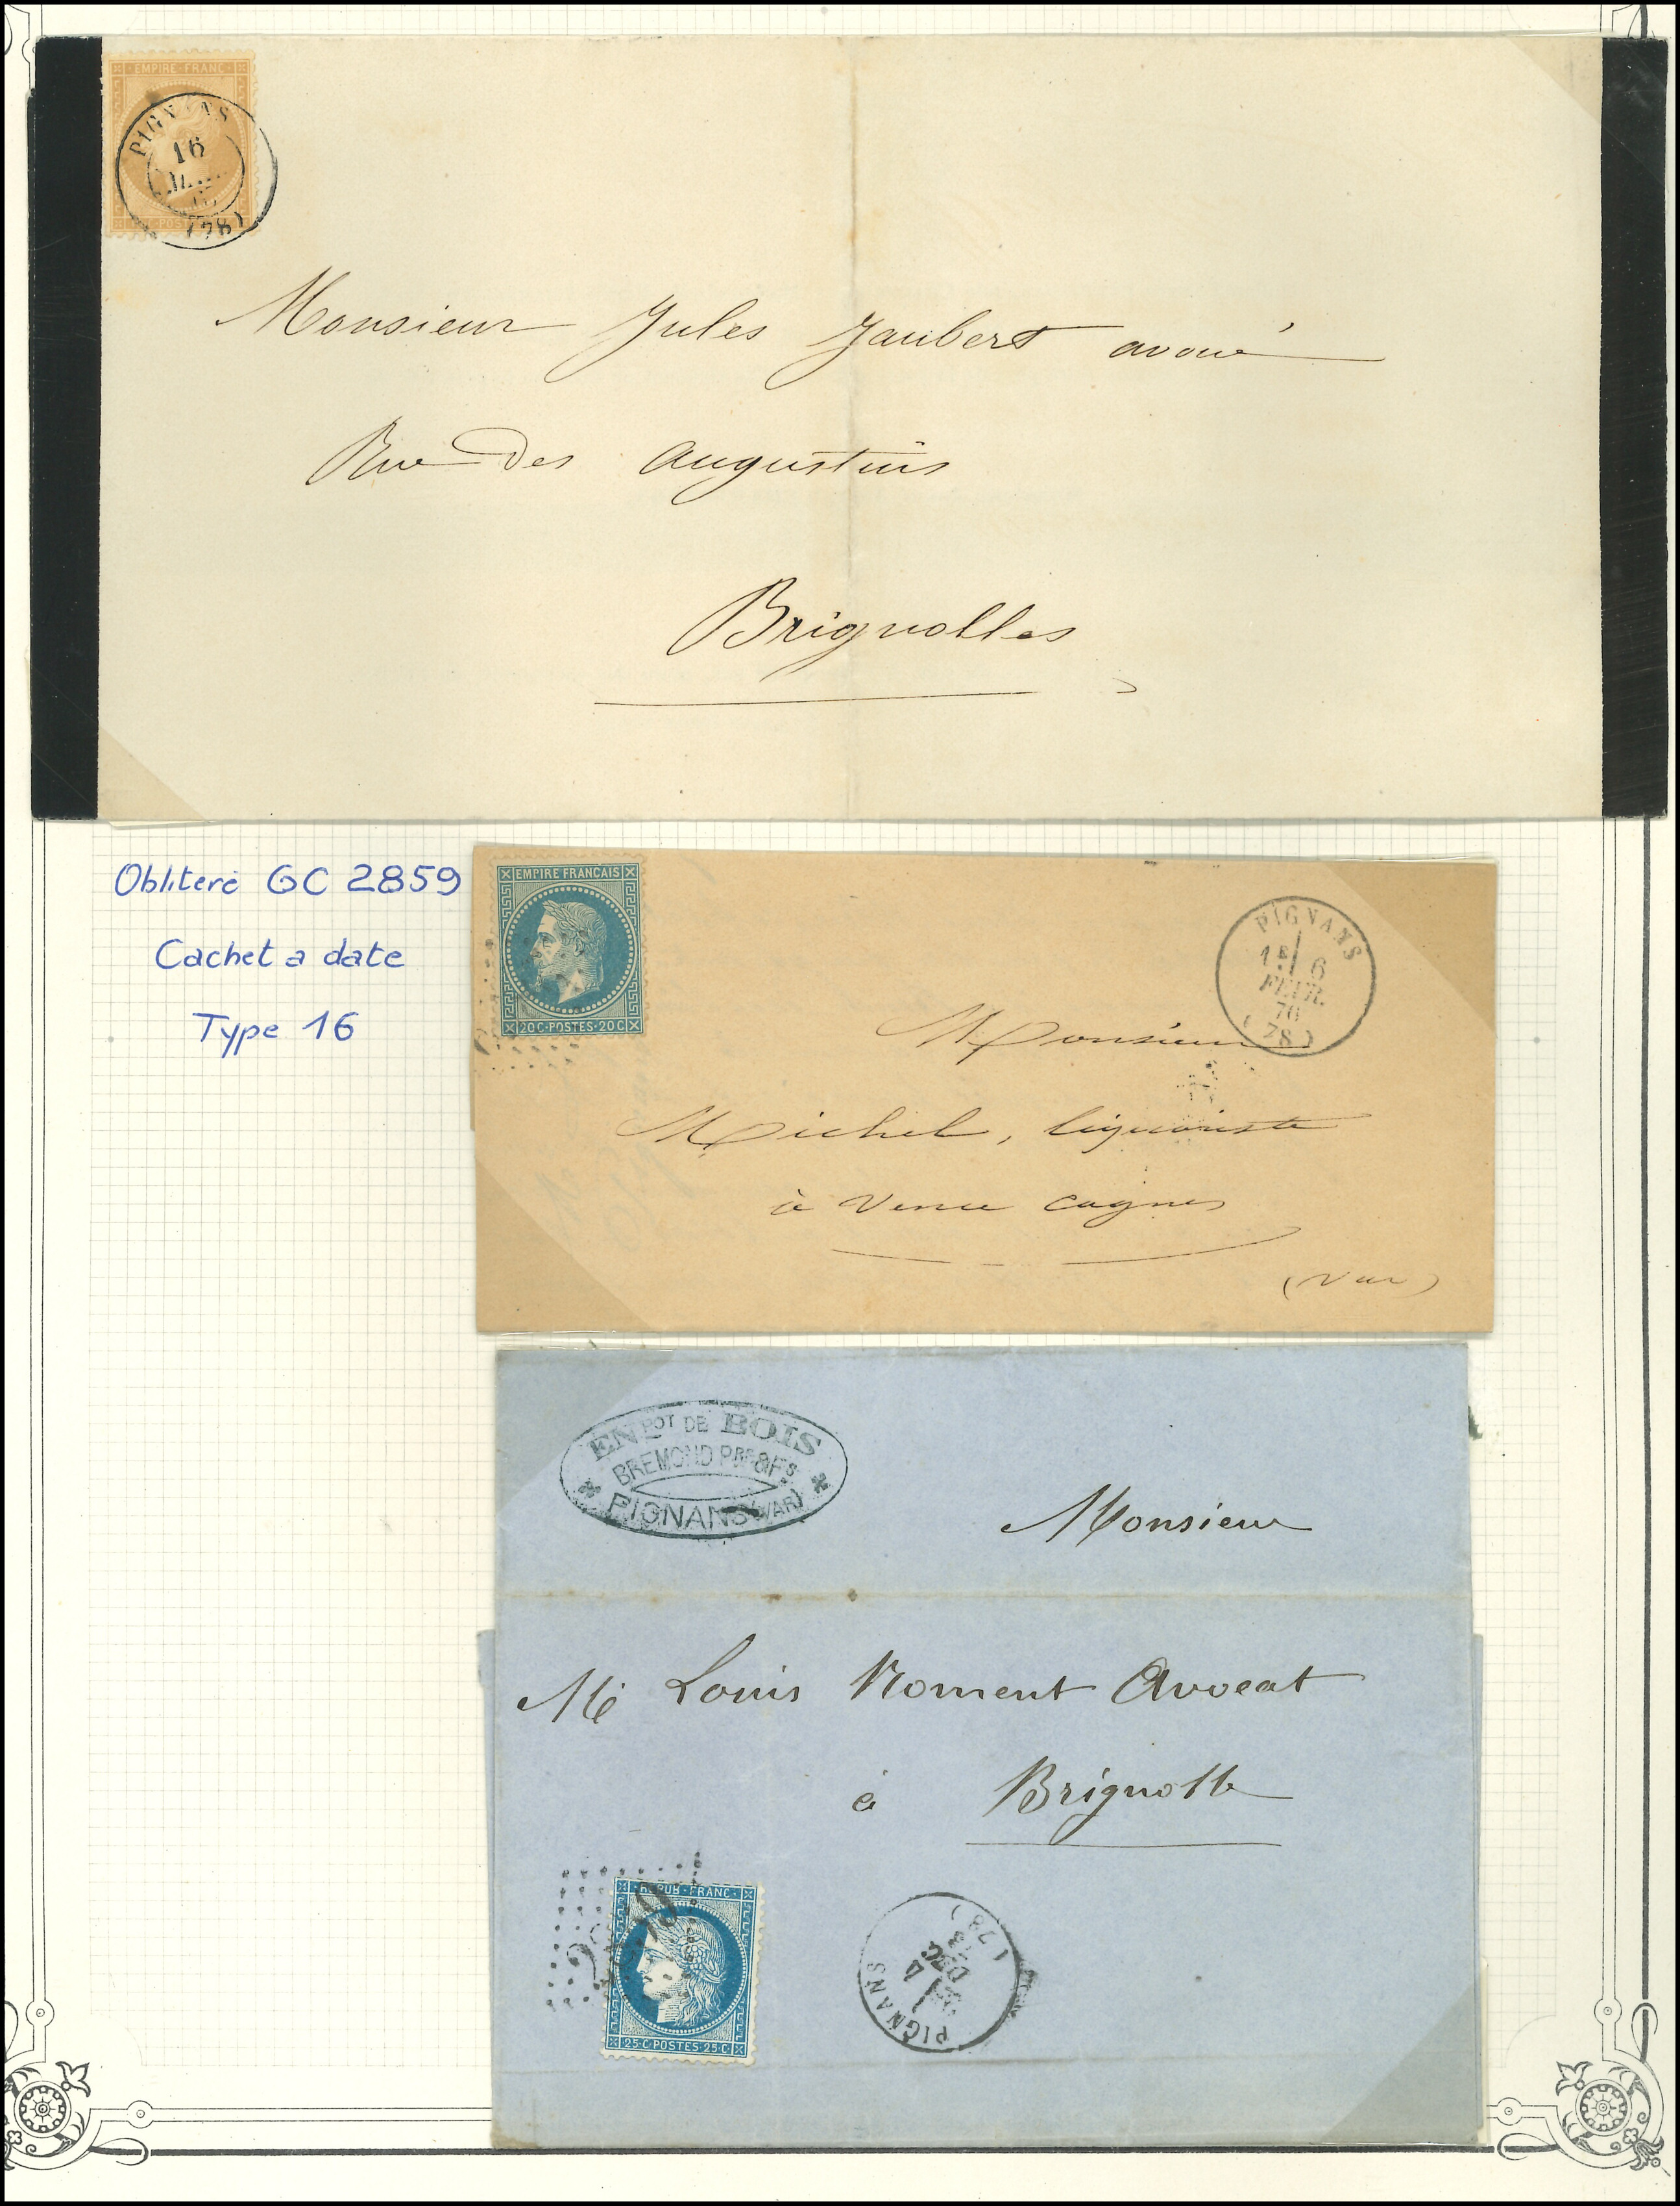 EMPIRE FRANC
PIGNANS
16
(78)
Monsieur Jules Jaubert avoué
Rue des Augustins
Brignolles
Obliteré GC 2859
Cachet a date
Type 16
EMPIRE FRANÇAIS
20C·POSTES·20C
PIGNANS
1E 6
FEVR.
70
(78)
Monsieur
Michel, liquoriste
à Vence Cagnes
(Var)
ENPOT DE BOIS
BREMOND PRE & FS
PIGNANS (VAR)
Monsieur
Me Louis Noment Avocat
à Brignolle
REPUB·FRANC
25·C·POSTES·25·C
PIGNANS
4
DEC.
73
(78)